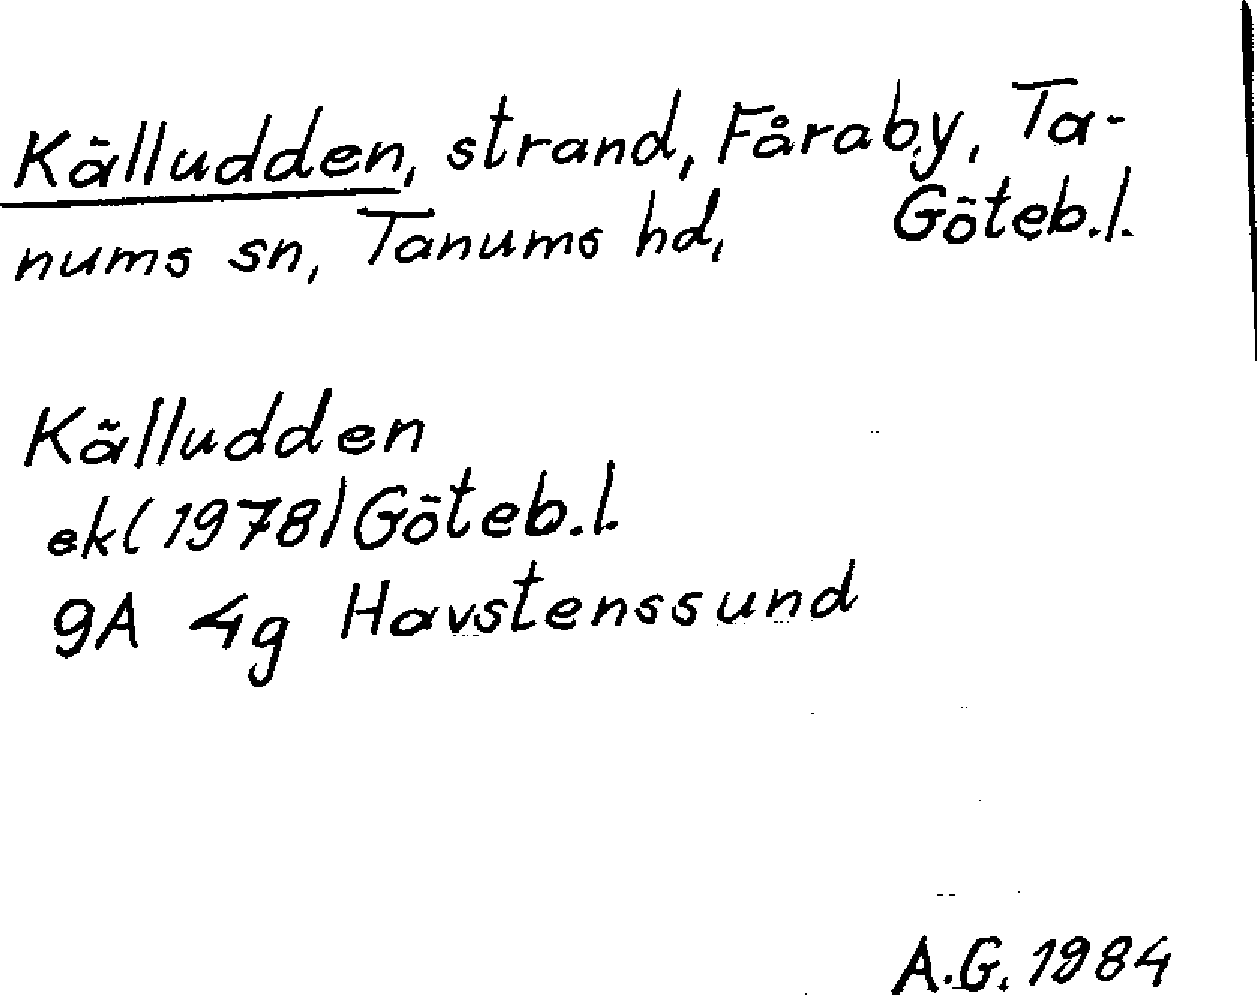 Källudden, strand, Fåraby, Ta-
nums sn, Tanums hd, Göteb.l.
Källudden
ek(1978)Göteb.l.
9A 4g Havstenssund
A.G. 1984